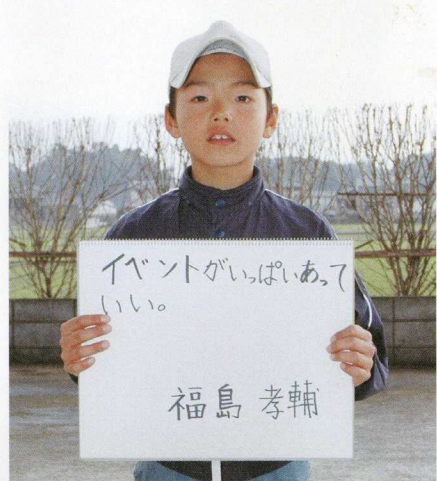 イベントがいっぱいあって
いい。
福島 孝輔